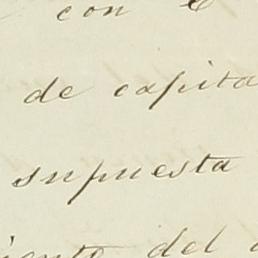 con
de capita
supuesta
iento del